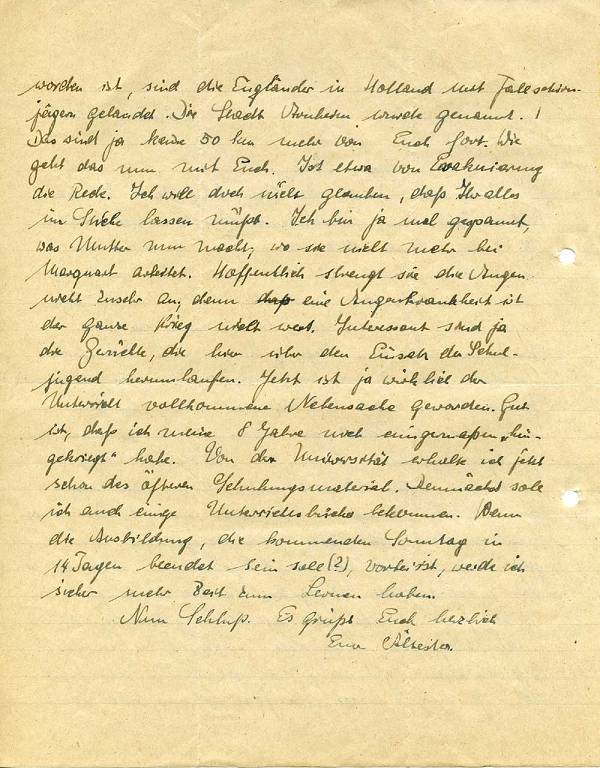 worden ist, sind die Engländer in Holland mit Fallschirm-
jägern gelandet. Die Stadt Arnheim wurde genannt. !
Das sind ja keine 50 km mehr von Euch fort. Wie
geht das nun mit Euch. Ist etwa von Evakuierung
die Rede. Ich will doch nicht glauben, daß Ihr alles
im Stiche lassen müßt. Ich bin ja mal gespannt,
was Mutter nun macht, wo sie nicht mehr bei
Marquart arbeitet. Hoffentlich strengt sie die Augen
nicht zusehr an, denn daß eine Augenkrankheit ist
der ganze Krieg nicht wert. Interessant sind ja
die Gerüchte, die hier über den Einsatz der Schul-
jugend herumlaufen. Jetzt ist ja wirklich der
Unterricht vollkommene Nebensache geworden. Gut
ist, daß ich meine 8 Jahre noch einigermaßen „hin-
gekriegt" habe. Von der Universität erhalte ich jetzt
schon des öfteren Schulungsmaterial. Demnächst solle
ich auch einige Unterrichtsbücher bekommen. Wenn
die Ausbildung, die kommenden Sonntag in
14 Tagen beendet sein solle (?), vorbei ist, werde ich
sicher mehr Zeit zum Lernen haben.
Nun Schluß. Es grüßt Euch herzlich
Euer Ältester.